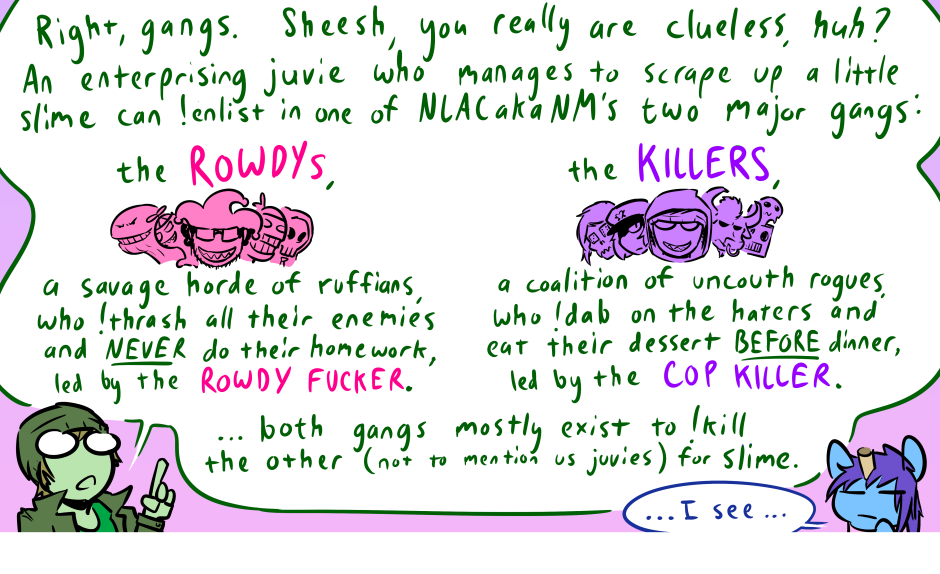 Right, gangs. Sheesh, you really are clueless, huh?
An enterprising juvie who manages to scrape up a little
slime can !enlist in one of NLACakaNM's two major gangs:
the ROWDYs,
a savage horde of ruffians,
who !thrash all their enemies
and NEVER do their homework,
led by the ROWDY FUCKER.
the KILLERS,
a coalition of uncouth rogues,
who !dab on the haters and
eat their dessert BEFORE dinner,
led by the COP KILLER.
... both gangs mostly exist to !kill
the other (not to mention us juvies) for slime.
...I see...